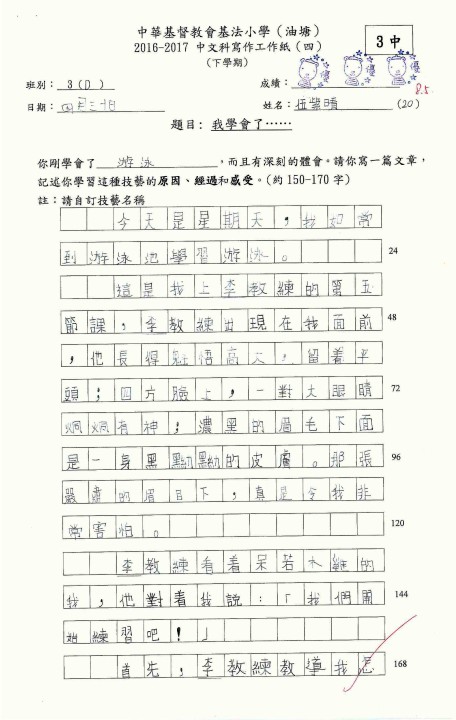 中華基督教會基法小學（油塘）
2016-2017 中文科寫作工作紙（四）
（下學期）
3中
優 優 優
班別： 3(D)
成績：
85
日期： 四月三十日
姓名： 伍紫晴 (20)
題目：我學會了……
你剛學會了 游泳 ，而且有深刻的體會。請你寫一篇文章，
記述你學習這種技藝的原因、經過和感受。（約150-170字）
註：請自訂技藝名稱
今天是星期天，我如常
到游泳池學習游泳。 24
這是我上李教練的第五
節課，李教練出現在我面前 48
，他長得魁悟高大，留着平
頭；四方臉上，一對大眼睛 72
炯炯有神；濃黑的眉毛下面
是一身黑黝黝的皮膚。那張 96
嚴肅的眉目下，真是令我非
常害怕。 120
李教練看着呆若木雞的
我，他對着我說：「我們開 144
始練習吧！」
首先，李教練教導我怎 168